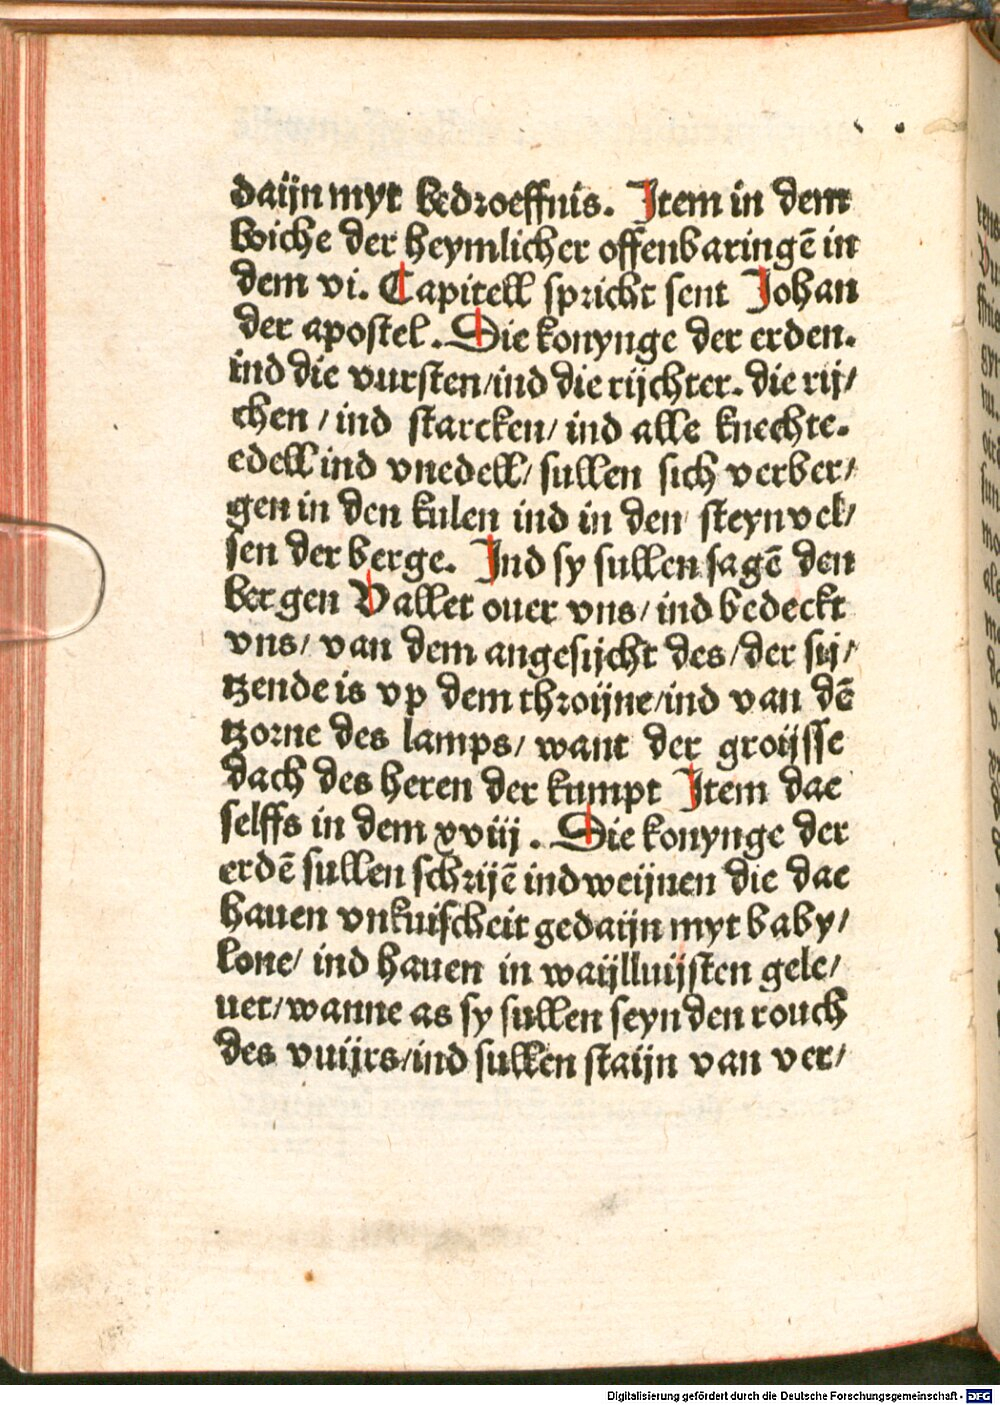 daijn myt bedroeffnis. Item in dem
boiche der heymlicher offenbaringē in
dem vi. Capitell spricht sent Johan
der apostel. Die konynge der erden.
ind die vursten/ind die rijchter. die rij/
chen / ind starcken/ ind alle knechte.
edell ind vnedell/ sullen sich verber/
gen in den kulen ind in den steynvel/
sen der berge. Ind sy sullen sagē den
bergen Vallet ouer vns/ ind bedeckt
vns/ van dem angesijcht des/der sij/
tzende is vp dem throijne/ind van dē
tzorne des lamps/ want der groijsse
dach des heren der kumpt Item dae
selffs in dem xviij. Die konynge der
erdē sullen schrijē ind weijnen die dae
hauen vnkuischeit gedaijn myt baby/
lone/ ind hauen in waijlluijsten gele/
uet/wanne as sy sullen seyn den rouch
des vuijrs/ind sullen staijn van ver/
Digitalisierung gefördert durch die Deutsche Forschungsgemeinschaft - DFG